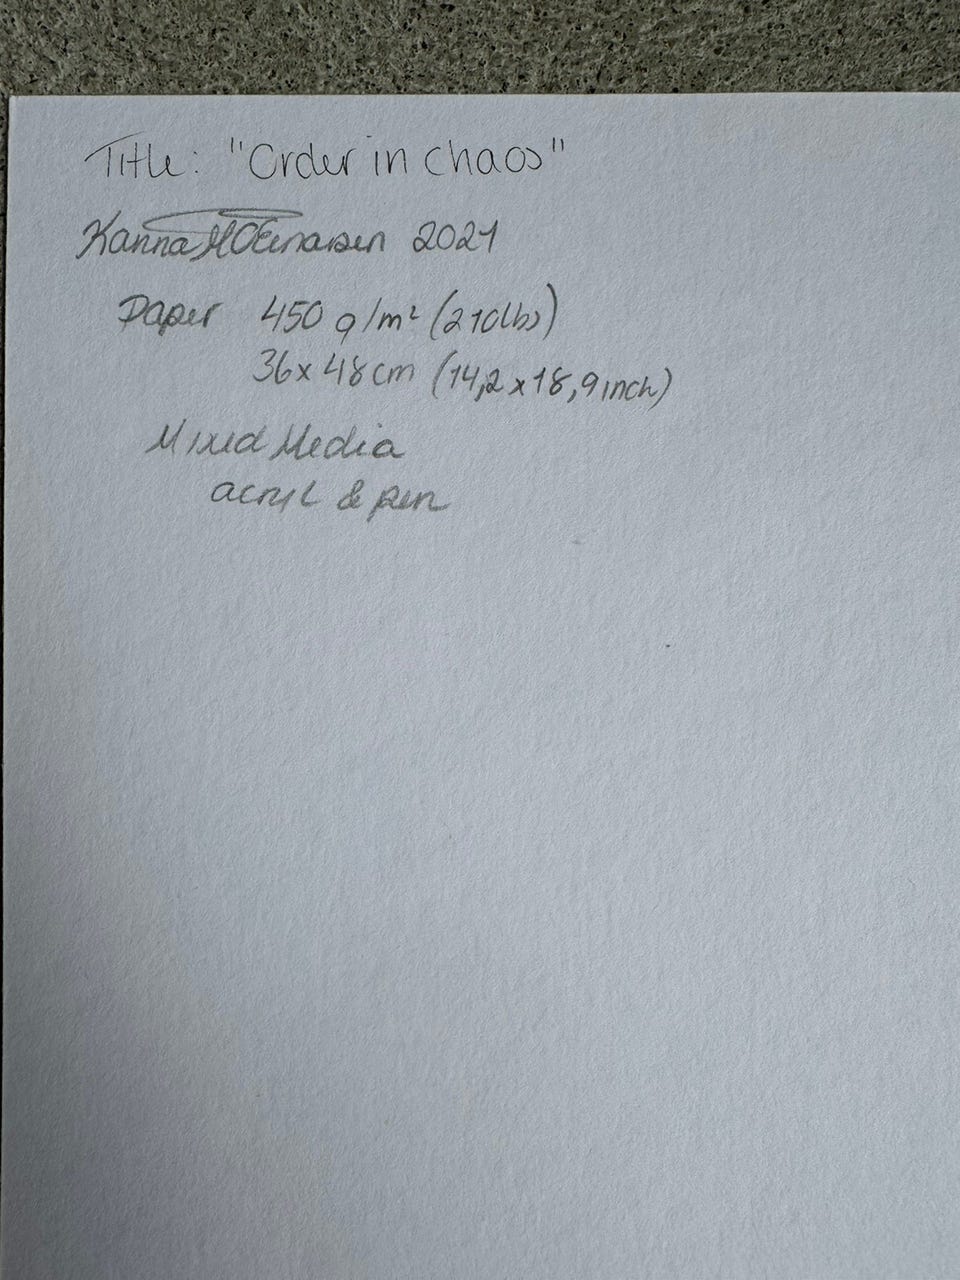 Title: "Order in chaos"
Kanna 2021
Paper 450 g/m² (210lbs)
36x48cm (14,2x18,9inch)
Mixed Media
acryl & pen